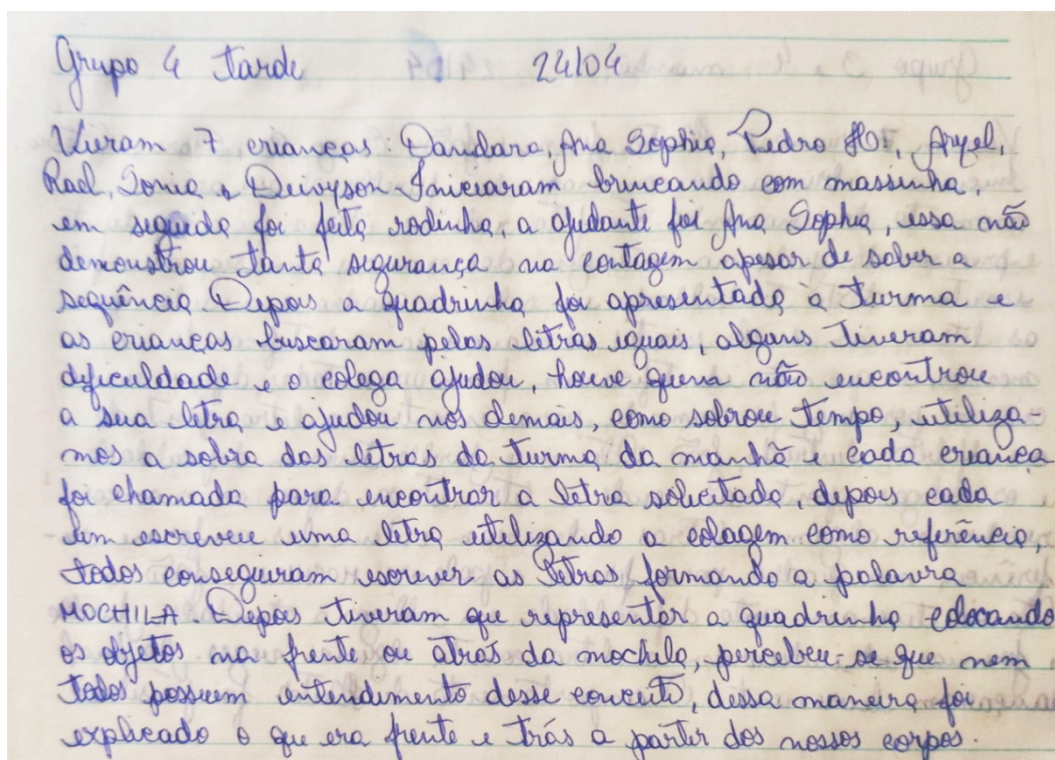 Grupo 4 tarde 24/04
Vieram 7 crianças: Dandara, Ana Sophia, Pedro HO:, Aryel,
Rael, Sonia e Deivyson. Iniciaram brincando com massinha,
em seguida foi feita rodinha, a ajudante foi Ana Sophia, essa não
demonstrou tanta segurança na contagem apesar de saber a
sequência. Depois a quadrinha foi apresentada à turma e
as crianças buscaram pelas letras iguais, alguns tiveram
dificuldade e o colega ajudou, houve quem não encontrou
a sua letra e ajudou nos demais, como sobrou tempo, utiliza-
mos a sobra das letras da turma da manhã e cada criança
foi chamada para encontrar a letra solicitada, depois cada
um escreveu uma letra utilizando a colagem como referência,
todos conseguiram escrever as letras formando a palavra
MOCHILA. Depois tiveram que representar a quadrinha colocando
os objetos na frente ou atrás da mochila, percebeu-se que nem
todos possuem entendimento desse conceito, dessa maneira foi
explicado o que era frente e trás a partir dos nossos corpos.